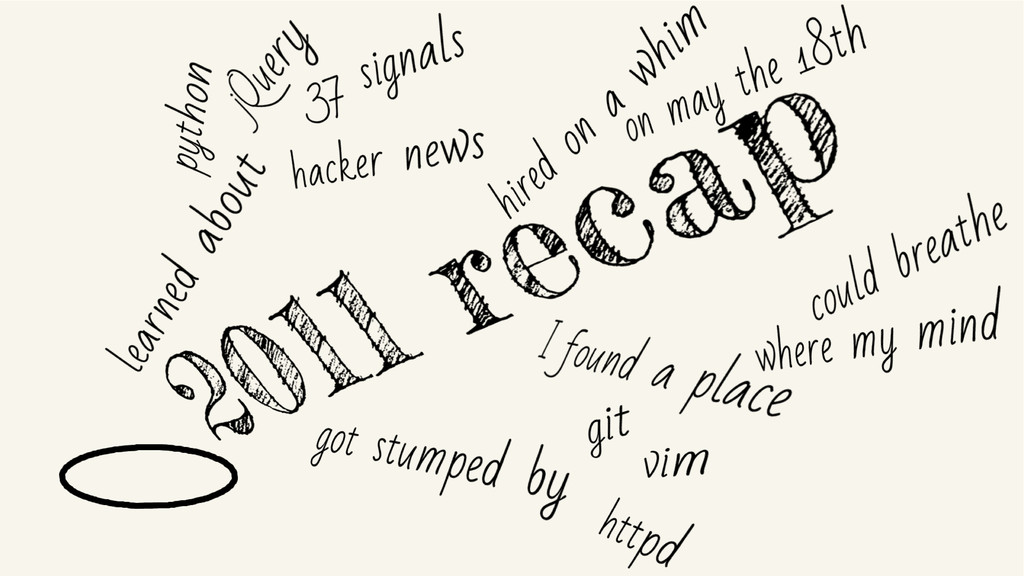 python
jQuery
37 signals
hacker news
learned about
hired on a whim
on may the 18th
2011 recap
could breathe
where my mind
I found a place
got stumped by
git
vim
httpd